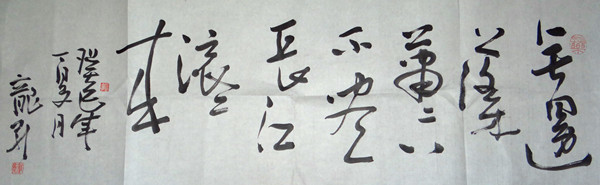 無邊
落木
蕭々下
不盡
長江
滾々
來
癸巳年
夏月
龍